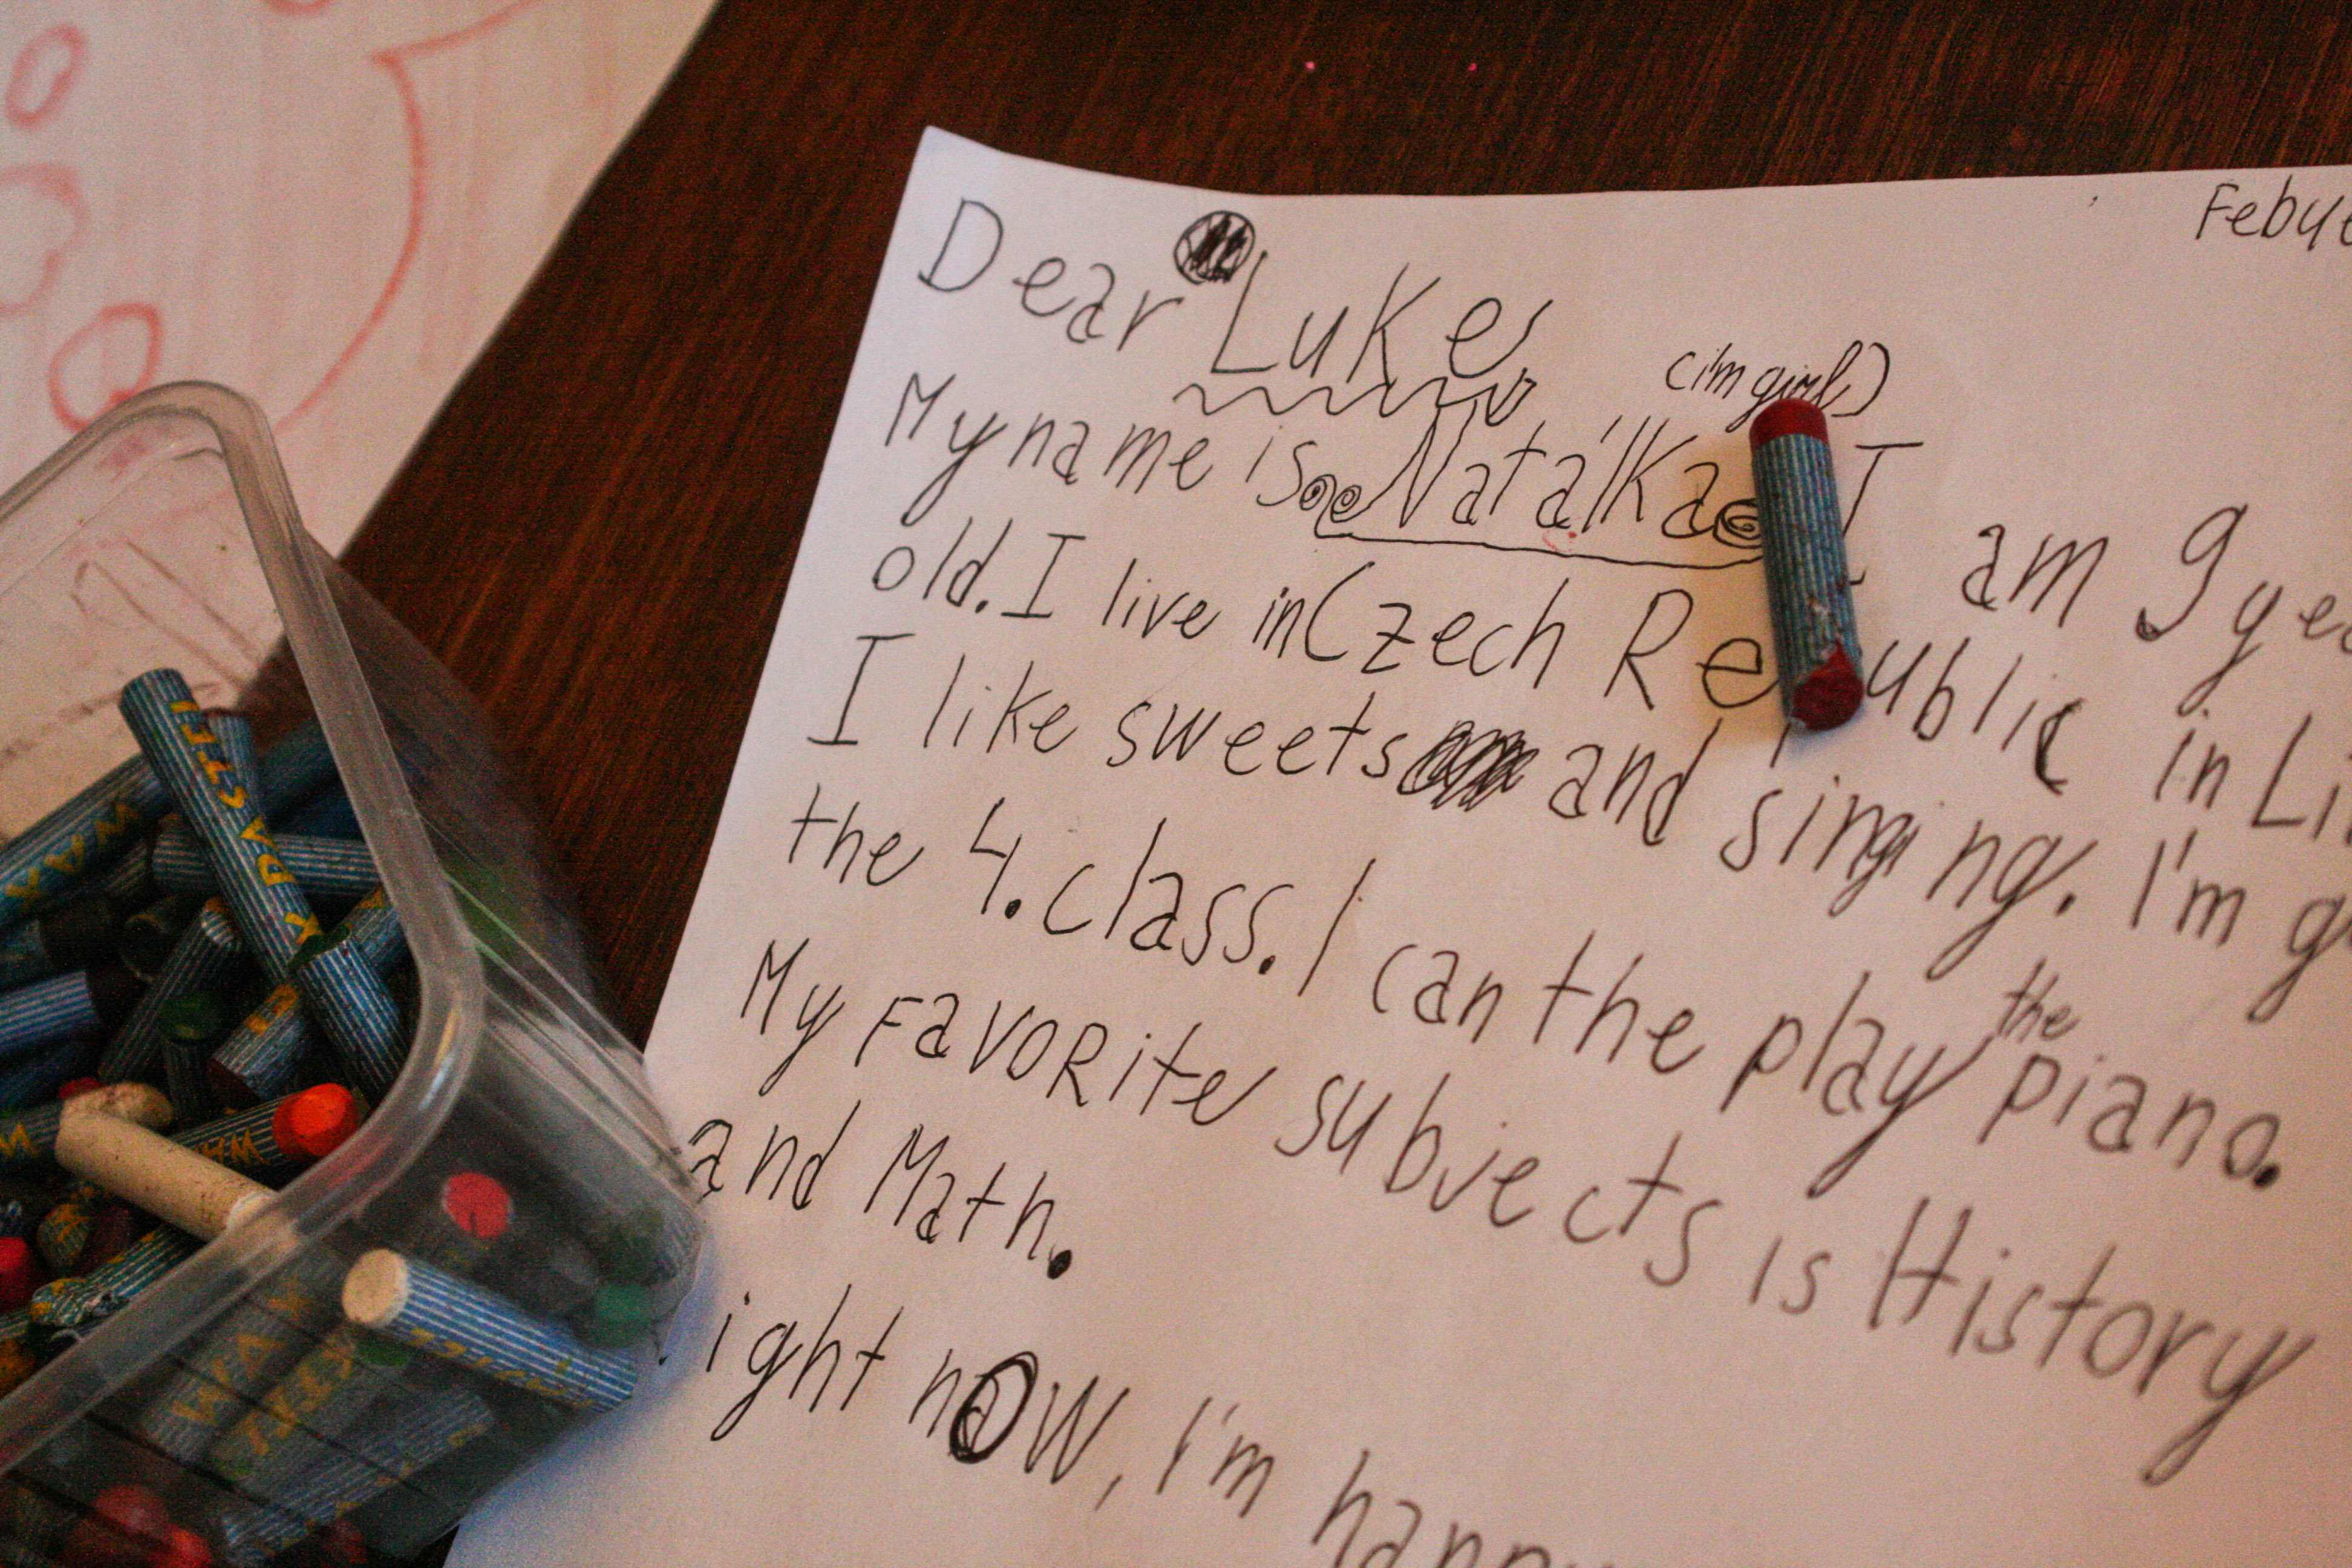 Febu
Dear Luke,
(i'm girl)
My name is Natálka I am 9 yea
old. I live in Czech Republic in Li
I like sweets and singing. I'm g
the 4. class. I can the play the piano.
My FavoRite subjects is History
and Math.
ight now, I'm happ
WAX PASTEL
WAX
WAX